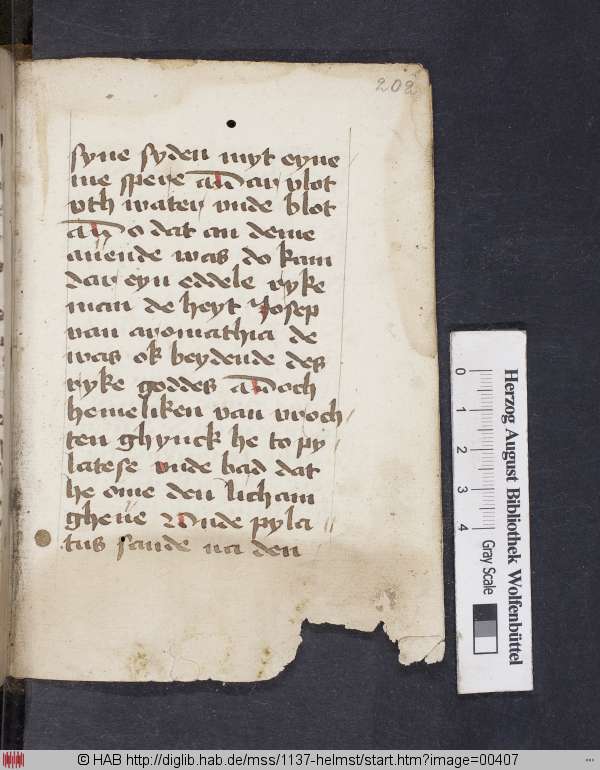 202
syne syden myt eyne
me spere Dar vlot
vth water vnde blot
Also dat an deme
auende was do kam
dar eyn eddele ryke
man de heyt Josep
van aromathia de
was ok beydende des
ryke goddes Doch
hemeliken van vroch
ten ghynck he to py
latese vnde bad dat
he ome den licham
gheue Vnde pyla
tus sande na den
Herzog August Bibliothek Wolfenbüttel
0 1 2 3 4
Gray Scale
© HAB http://diglib.hab.de/mss/1137-helmst/start.htm?image=00407